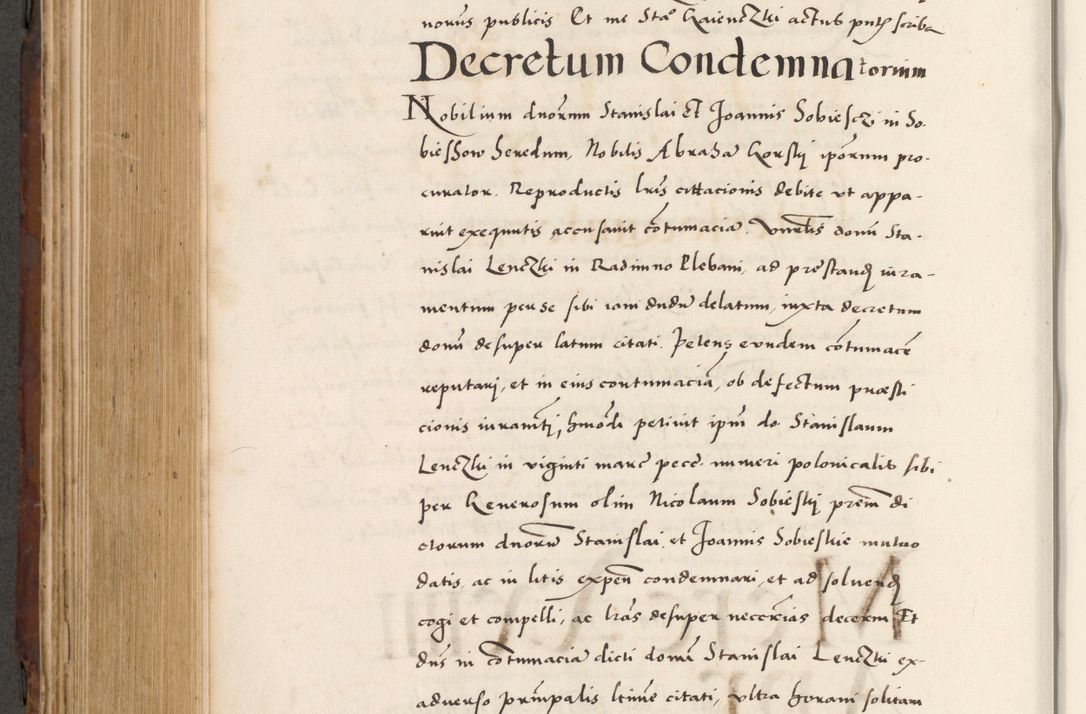 norus publicis Et me Sta° Gaienczki actus pntς scriba
Decretum Condemnatorium
Nobilium dnorum Stanislai Et Joannis Sobiesczi in So-
biesshow heredum, Nobilis Abraha Gorskij ipōrum pro-
curator. Reproductis lrīs cittacionis debite ut appa-
ruit exequutis accusavit cōtumaciā. Vnrblis domī Sta-
nislai Lenczki in Radimno Plebani, ad prestandϛ iura-
mentum per se sibi iam dudū delatum, iuxta decretum
domī desuper latum citati. Petens eundem cōtumacē
reputarj, et in eius contumaciā, ob defectum præsti
cionis iuramti, hmōdi petiuit ipm̄ do. Stanislaum
Lenczki in viginti marc̄ pecc. numeri polonicalis sibi
per Generosum olim Nicolaum Sobieskij prem̄ di
ctorum dnorū Stanislai et Joannis Sobieskie mutuo
datis, ac in litis expen̄ condemnari, et ad solvendϛ
cogi et compelli, ac lrās desuper neccrias decerni Et
dnūs in cōtumaciā dicti domī Stanislai Lenczki ex-
adverso prm̄palis ltime citati, ultra horam solitam